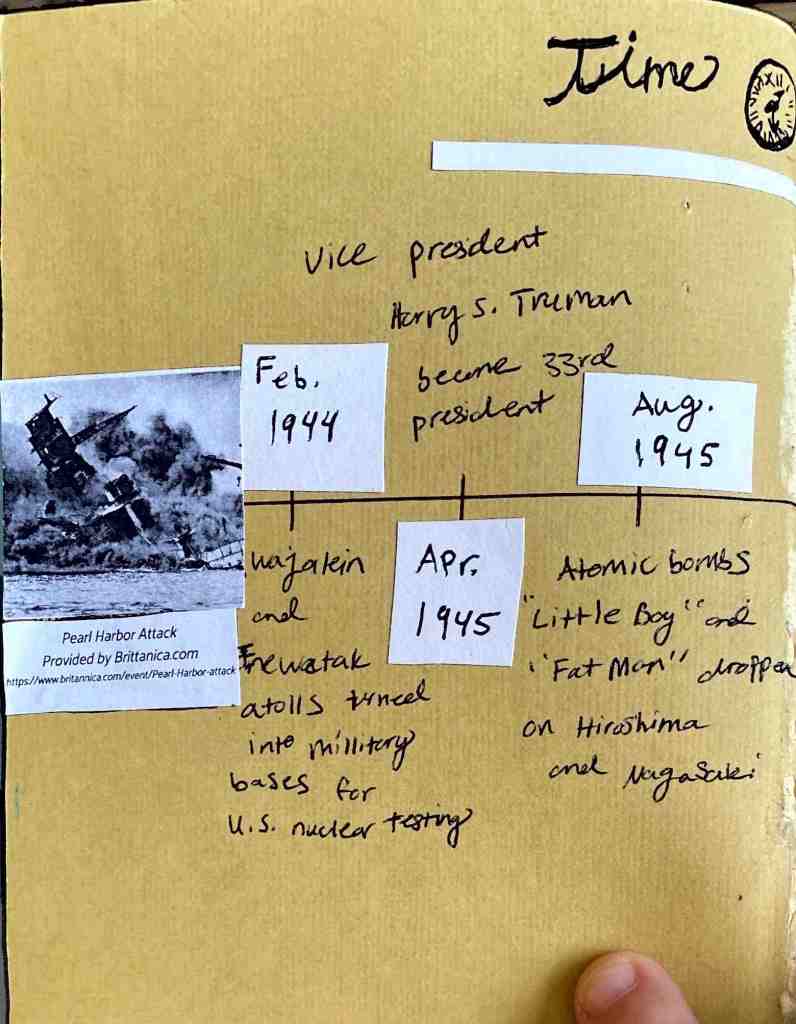 Time
XII
Vice president
Harry S. Truman
became 33rd
president
Feb.
1944
Aug.
1945
Apr.
1945
wajalein
and
Enewatak
atolls turned
into millitary
bases for
U.S. nuclear testing
Atomic bombs
"Little Boy" and
"Fat Man" dropped
on Hiroshima
and Nagasaki
Pearl Harbor Attack
Provided by Brittanica.com
https://www.britannica.com/event/Pearl-Harbor-attack